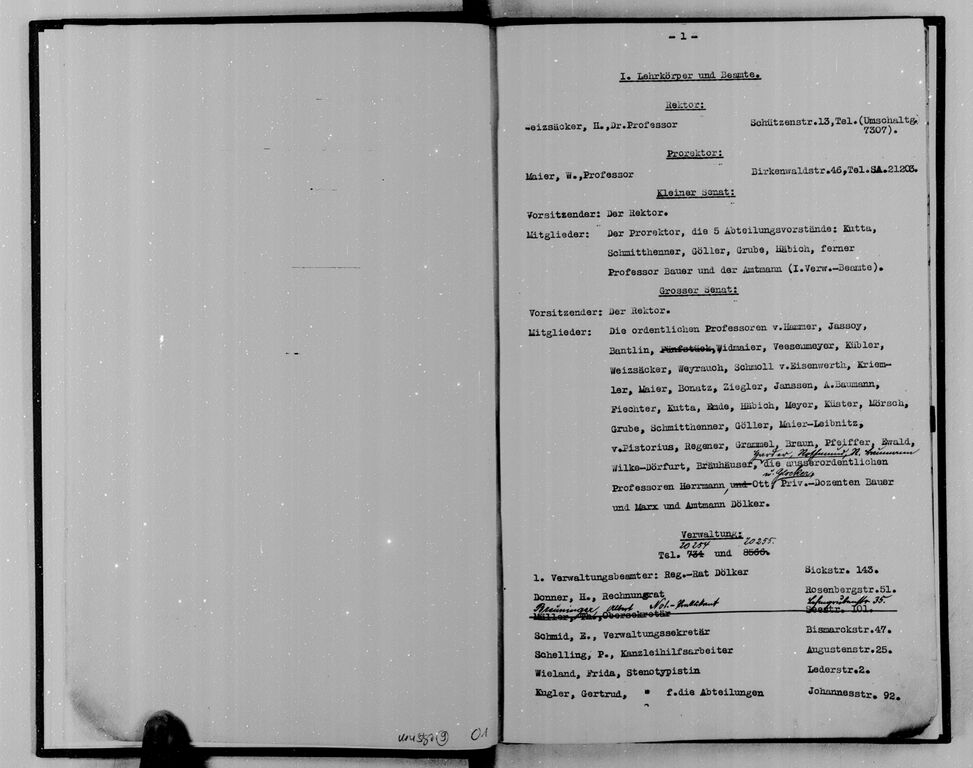 - 1 -
I. Lehrkörper und Beamte.
Rektor:
Weizsäcker, H.,Dr.Professor Schützenstr.13,Tel.(Umschaltg.
7307).
Prorektor:
Maier, W.,Professor Birkenwaldstr.46,Tel.SA.21203.
Kleiner Senat:
Vorsitzender: Der Rektor.
Mitglieder: Der Prorektor, die 5 Abteilungsvorstände: Kutta,
Schmitthenner, Göller, Grube, Häbich, ferner
Professor Bauer und der Amtmann (I.Verw.-Beamte).
Grosser Senat:
Vorsitzender: Der Rektor.
Mitglieder: Die ordentlichen Professoren v.Hammer, Jassoy,
Bantlin, Fünfstück, Widmaier, Veesenmeyer, Kübler,
Weizsäcker, Weyrauch, Schmoll v.Eisenwerth, Kriem-
ler, Maier, Bonatz, Ziegler, Janssen, A.Baumann,
Fiechter, Kutta, Emde, Häbich, Meyer, Küster, Mörsch,
Grube, Schmitthenner, Göller, Maier-Leibnitz,
v.Pistorius, Regener, Grammel, Braun, Pfeiffer, Ewald,
Harder, Rothmund, R. Baumann
Wilke-Dörfurt, Bräuhäuser, die ausserordentlichen
u. Glocker,
Professoren Herrmann, und Ott, Priv.-Dozenten Bauer
und Marx und Amtmann Dölker.
Verwaltung:
20254 20255.
Tel. 734 und 8566.
1. Verwaltungsbeamter: Reg.-Rat Dölker Sickstr. 143.
Donner, H., Rechnungsrat Rosenbergstr.51.
Breuninger, Albert Not.-Praktikant 35.
Müller, Th.,Obersekretär Seestr. 101.
Schmid, E., Verwaltungssekretär Bismarckstr.47.
Schelling, P., Kanzleihilfsarbeiter Augustenstr.25.
Wieland, Frida, Stenotypistin Lederstr.2.
Kugler, Gertrud, " f.die Abteilungen Johannesstr. 92.
01